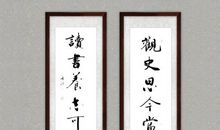 觀史思今當
讀書養志可